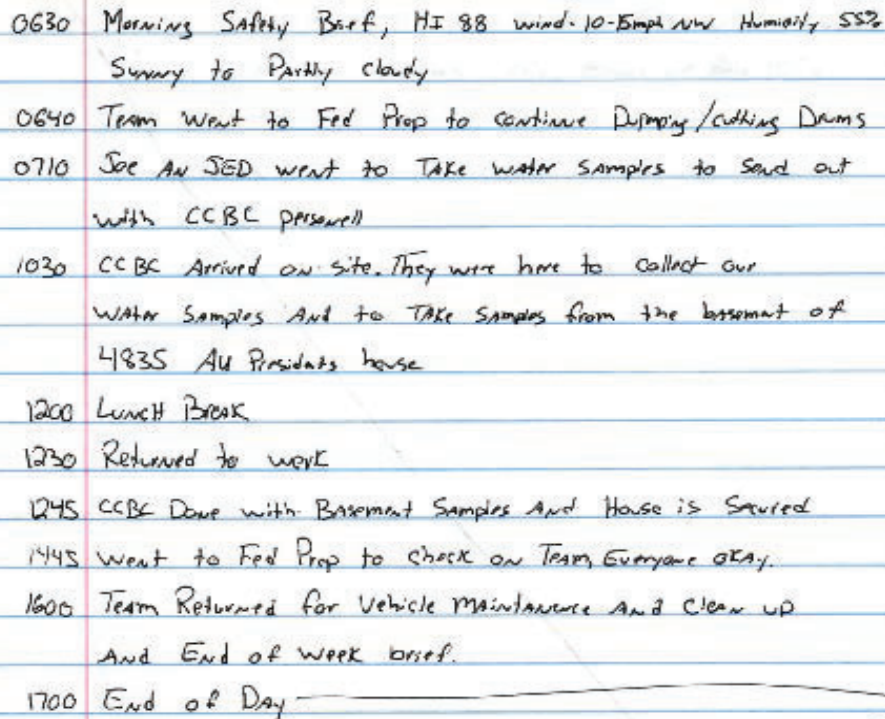 0630 Morning Safety Brief, HI 88 wind-10-15mph NW Humidity 55%
Sunny to Partly cloudy
0640 Team Went to Fed Prop to continue Dumping/cutting Drums
0710 Joe AN JED went to TAKE water samples to Send out
with CCBC personell
1030 CCBC Arrived on site. They were here to collect our
Water Samples And to TAKE Samples from the basement of
4835 AU Presidents house
1200 Lunch Break
1230 Returned to work
1245 CCBC Done with Basement Samples And House is Secured
1445 Went to Fed Prop to check on Team, Everyone okay.
1600 Team Returned for Vehicle Maintanence And Clean up
And End of week brief.
1700 End of Day